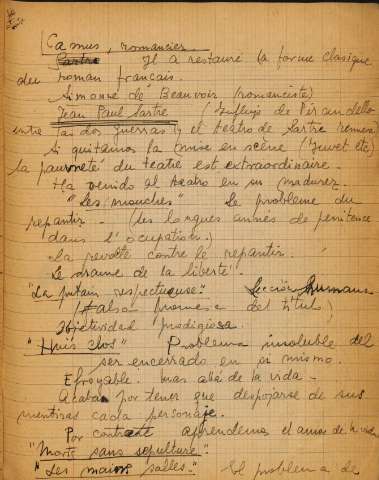 (Camus, romancier.
Sartre Il a restauré la forme clasique
du roman français.
Simone de Beauvoir (romanciste)
Jean Paul Sartre (Influjo de Pirandello
entre las dos guerras) y el teatro de Sartre
Si quitamos la mise en scène (Jouvet etc)
la pauvreté du teatre est extraordinaire.
Ha venido al teatro en su madurez.
"Les mouches" Le probleme du
repantir - (les longues années de penitence
dans l'ocupation.)
La revolte contre le repantir.
Le drame de la liberté.
"La putain respectueuse" Lección humana
(falsa promesa del titulo)
Objetividad prodigiosa.
"Huis clos" Problema insoluble del
ser encerrado en si mismo.
Efroyable. mas allá de la vida -
Acaban por tener que despojarse de sus
mentiras cada personaje.
Por contraste aprendemos el amor de la vida
"Morts sans sepulture".
"Les mains salles." El problema de